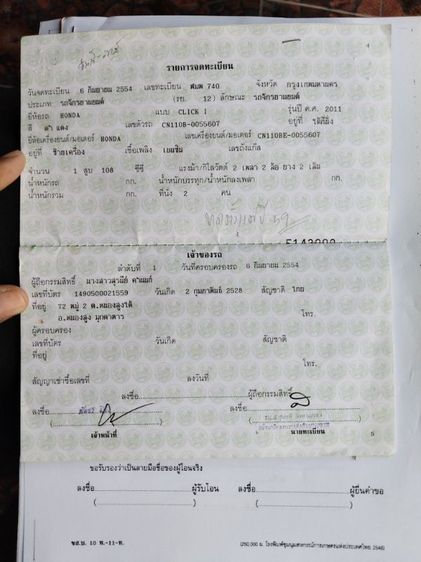 รายการจดทะเบียน
วันจดทะเบียน 6 กันยายน 2554 เลขทะเบียน 740 จังหวัด กรุงเทพมหานคร
ประเภท รถจักรยานยนต์ (รย. 12) ลักษณะ รถจักรยานยนต์
ยี่ห้อรถ HONDA แบบ CLICK I รุ่นปี ค.ศ. 2011
สี ดำ แดง เลขตัวรถ CN110B-0055607 อยู่ที่
ยี่ห้อเครื่องยนต์/มอเตอร์ HONDA เลขเครื่องยนต์/มอเตอร์ CN110BE-0055607
อยู่ที่ ซ้ายเครื่อง เชื้อเพลิง เบนซิน เลขถังแก๊ส
จำนวน 1 สูบ 108 ซีซี แรงม้า/กิโลวัตต์ 2 เพลา 2 ล้อ ยาง 2 เส้น
น้ำหนักรถ กก. น้ำหนักบรรทุก/น้ำหนักลงเพลา กก.
น้ำหนักรวม กก. ที่นั่ง 2 คน
เจ้าของรถ
ลำดับที่ 1 วันที่ครอบครองรถ 6 กันยายน 2554
ผู้ถือกรรมสิทธิ์ นางสาวสุวนีย์
เลขที่บัตร 1490500021559 วันเกิด 2 กุมภาพันธ์ 2528 สัญชาติ ไทย
ที่อยู่ 72 หมู่ 2 ต.หนองสูงใต้
อ.หนองสูง มุกดาหาร โทร.
ผู้ครอบครอง
เลขที่บัตร วันเกิด สัญชาติ
ที่อยู่
โทร.
สัญญาเช่าซื้อเลขที่ ลงวันที่
ลงชื่อ ผู้ถือกรรมสิทธิ์
ลงชื่อ ลงชื่อ
เจ้าหน้าที่ นายทะเบียน
5
ขอรับรองว่าเป็นลายมือชื่อของผู้โอนจริง
ลงชื่อ ผู้รับโอน ลงชื่อ ผู้ยื่นคำขอ
( ) ( )
ขส.บ. 10 พ.-11-พ. โรงพิมพ์ชุมนุมสหกรณ์การเกษตรแห่งประเทศไทย